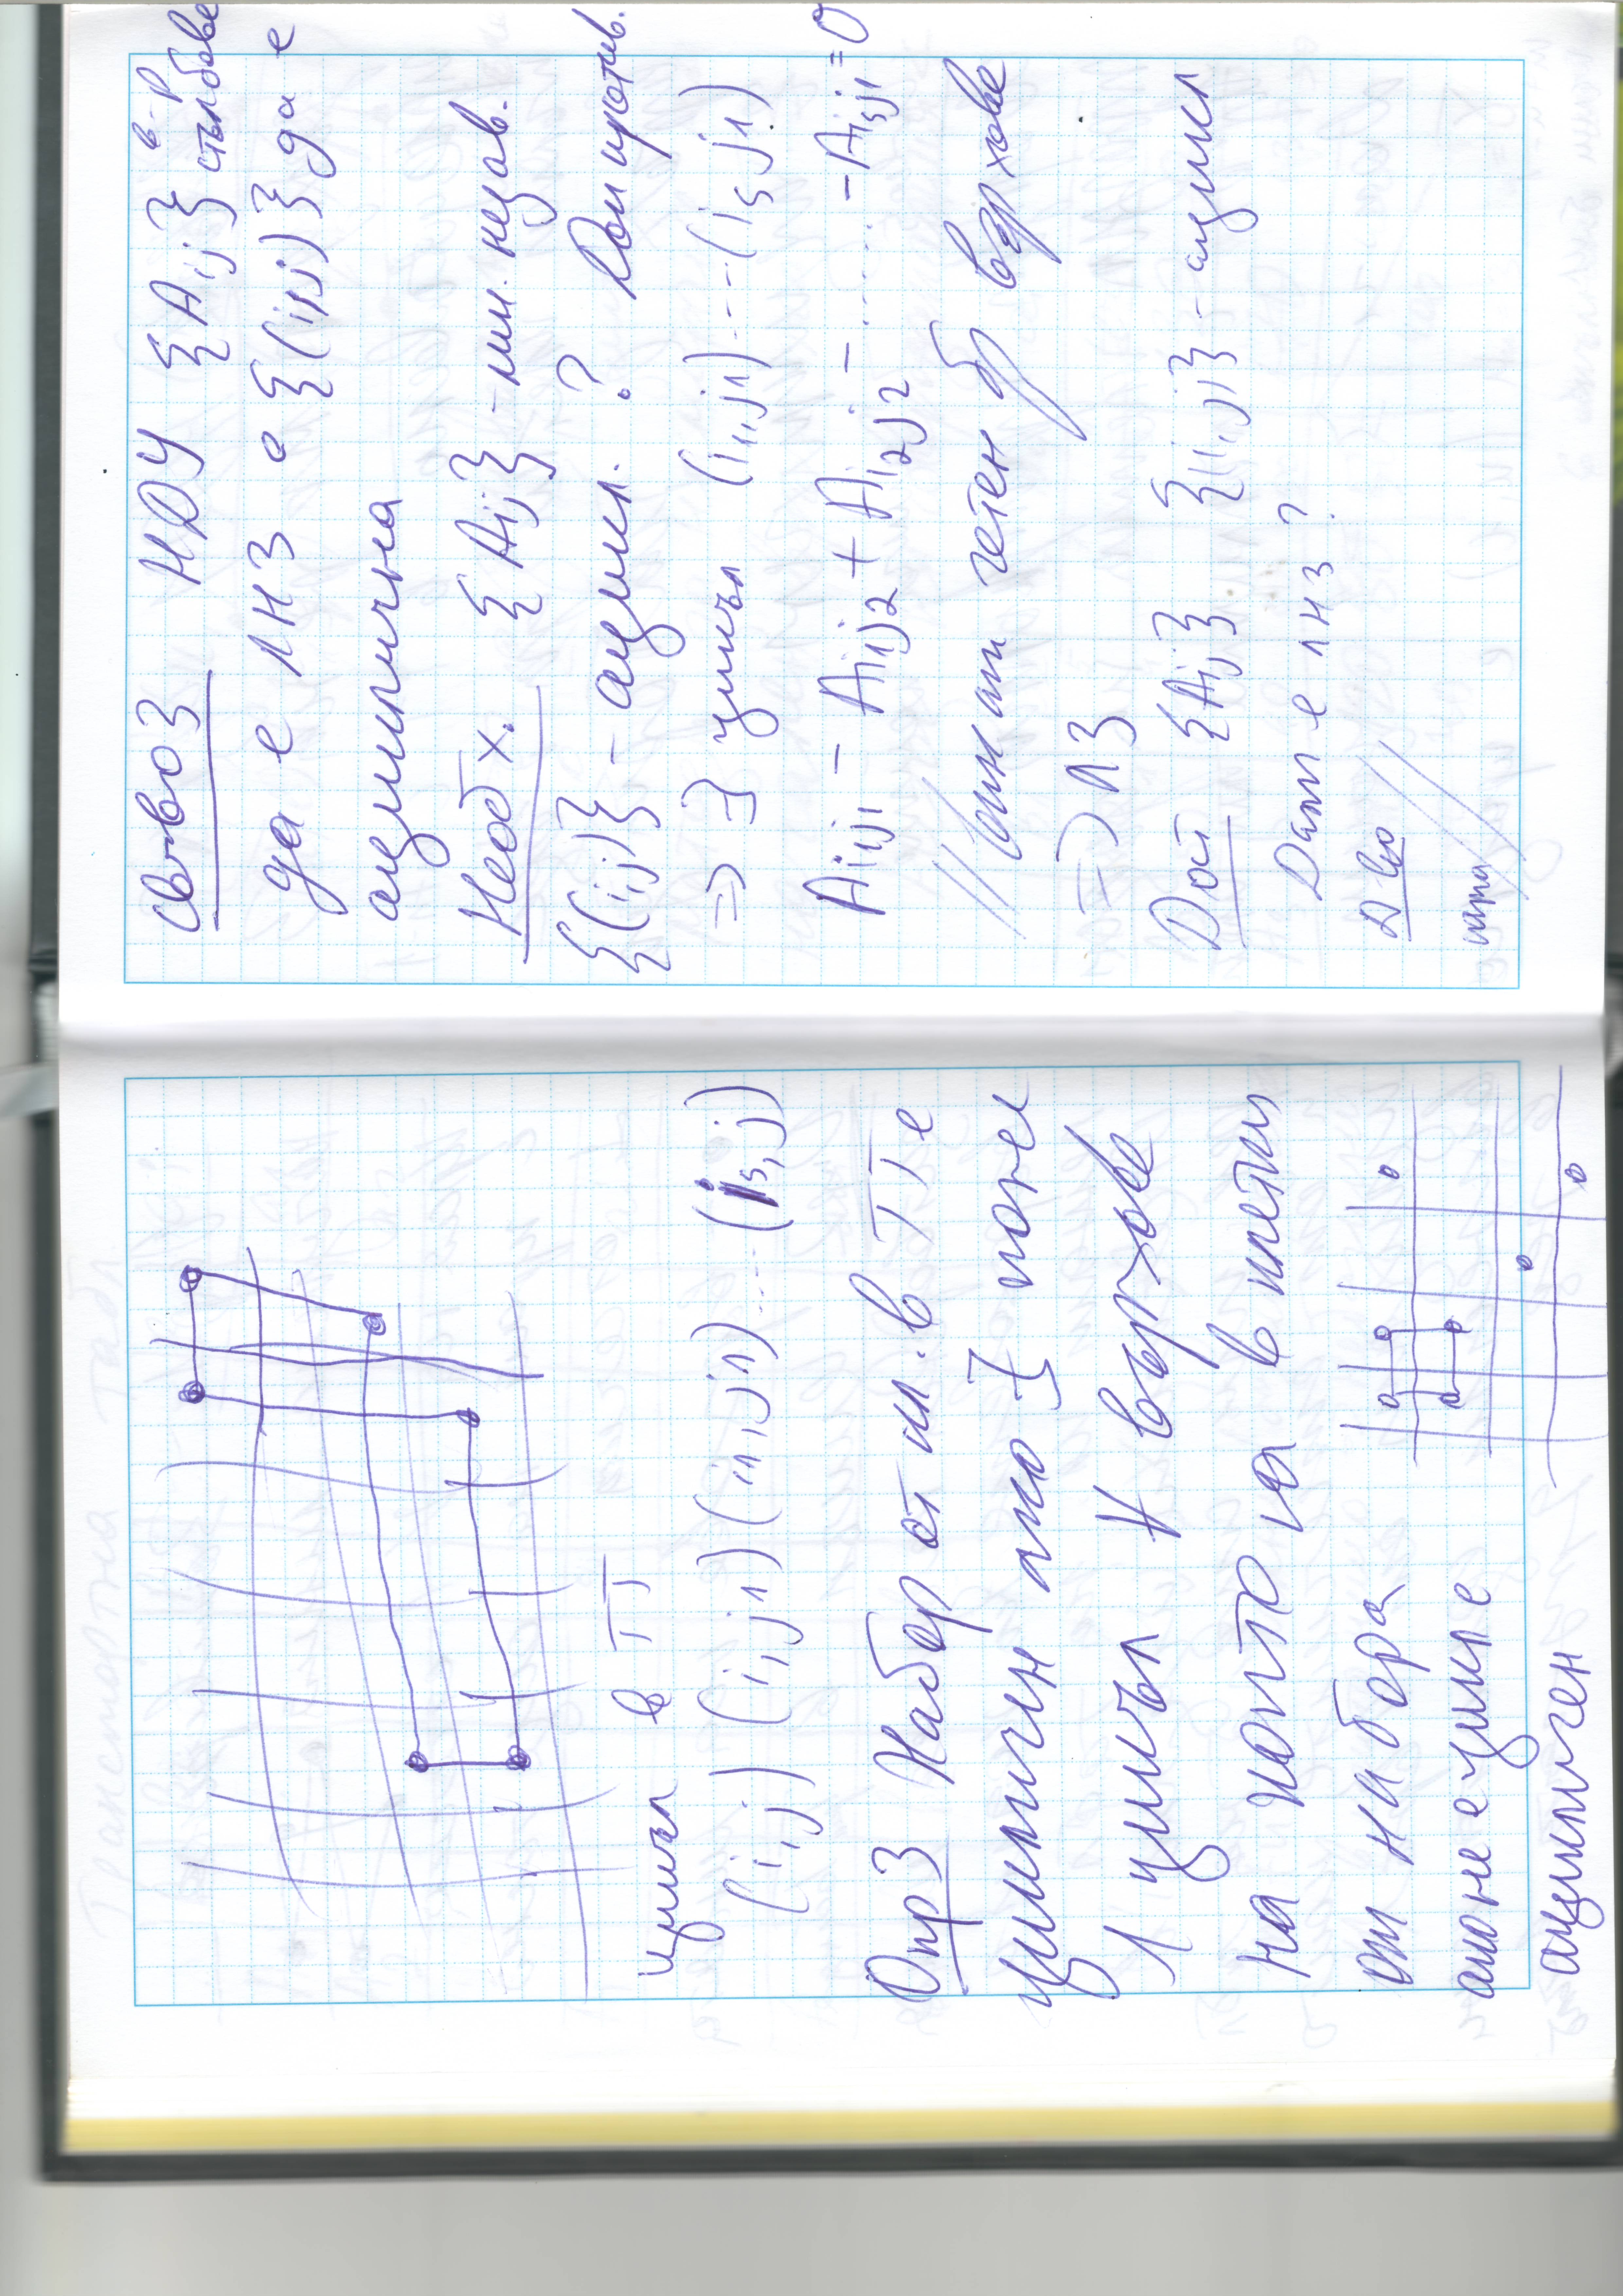 цикъл в ТТ
(i,j) (i,j1) (i1,j1) .... (is,j)
Опр3 Набор от кл. в ТТ е
цикличен ако ∃ поне
1 цикъл ∀ върхове
на който са в клетки
от набора
ако не е цикл е
ацикличен
Св-во3 НДУ {Aij} в-р стълбове
да е ЛНЗ е {(i,j)} да е
ациклична
Необх. {Aij} - лин. незав.
{(i,j)} - ацикл. ? Доп против.
=> ∃ цикъл (i1,j1) .... (is,j1)
Ai1j1 - Ai1j2 + Ai2j2 - ..... - Aisj1 = 0
// Винаги четен бр върхове
=> ЛЗ
Дост {Aij} {(i,j)} - ацикл
Дали е ЛНЗ?
Д-во